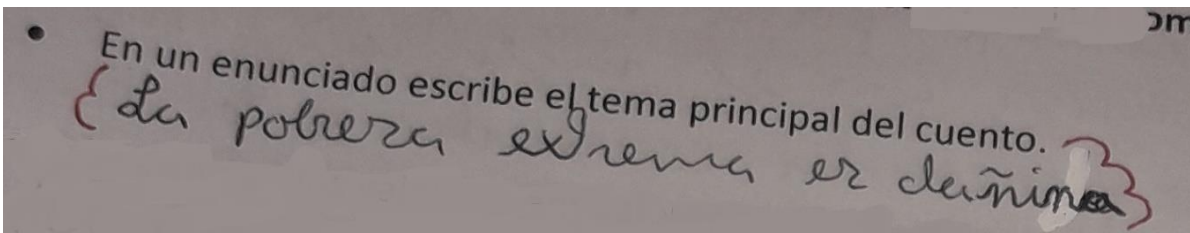 • En un enunciado escribe el tema principal del cuento.
La pobreza extrema es dañina